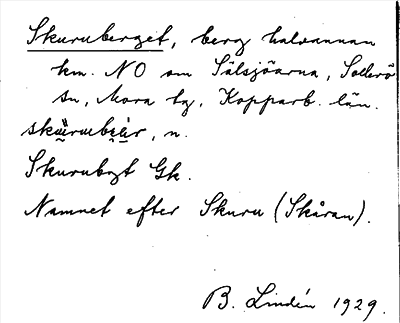 Skuruberget, berg halvannan
km. NO om Sälsjöarna, Sollerö
sn, Mora tg, Kopparb. län.
, n.
Skurubgt Gk.
Namnet efter Skuru (Skåran).
B. Lindén 1929.